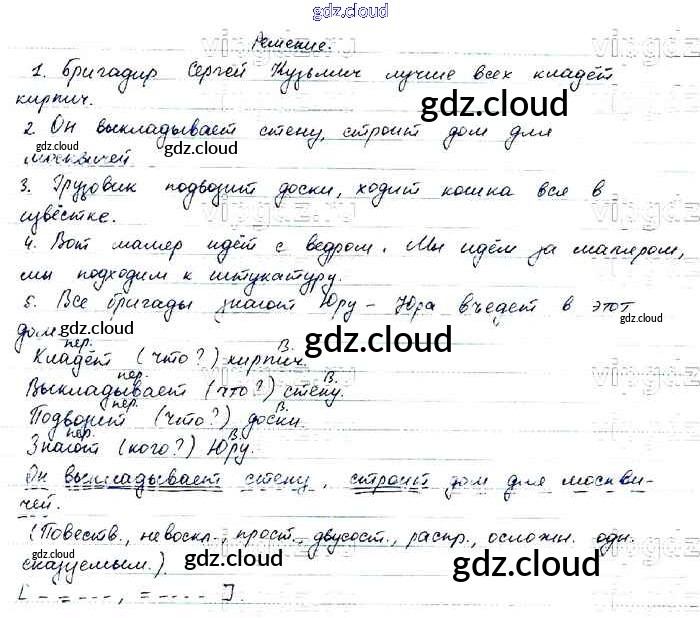 gdz.cloud
Решение.
1. Бригадир Сергей Кузьмич лучше всех кладёт
кирпич.
2. Он выкладывает стену, строит дом для
москвичей
3. Грузовик подвозит доски, ходит кошка вся в
извёстке.
4. Вот маляр идёт с ведром. Мы идём за маляром,
мы подходим к штукатуру.
5. Все бригады знают Юру – Юра въедет в этот
дом.
пер. В.
Кладёт (что?) кирпич.
пер. В.
Выкладывает (что?) стену.
пер. В.
Подвозит (что?) доски.
пер. В.
Знают (кого?) Юру.
Он выкладывает стену, строит дом для москви-
чей.
(Повеств., невоскл., прост., двусост., распр., осложн. одн.
сказуемым.).
[ - = ---- , = ---- ].
gdz.cloud
gdz.cloud
gdz.cloud
gdz.cloud
gdz.cloud
gdz.cloud
gdz.cloud
gdz.cloud
gdz.cloud
gdz.cloud
gdz.cloud